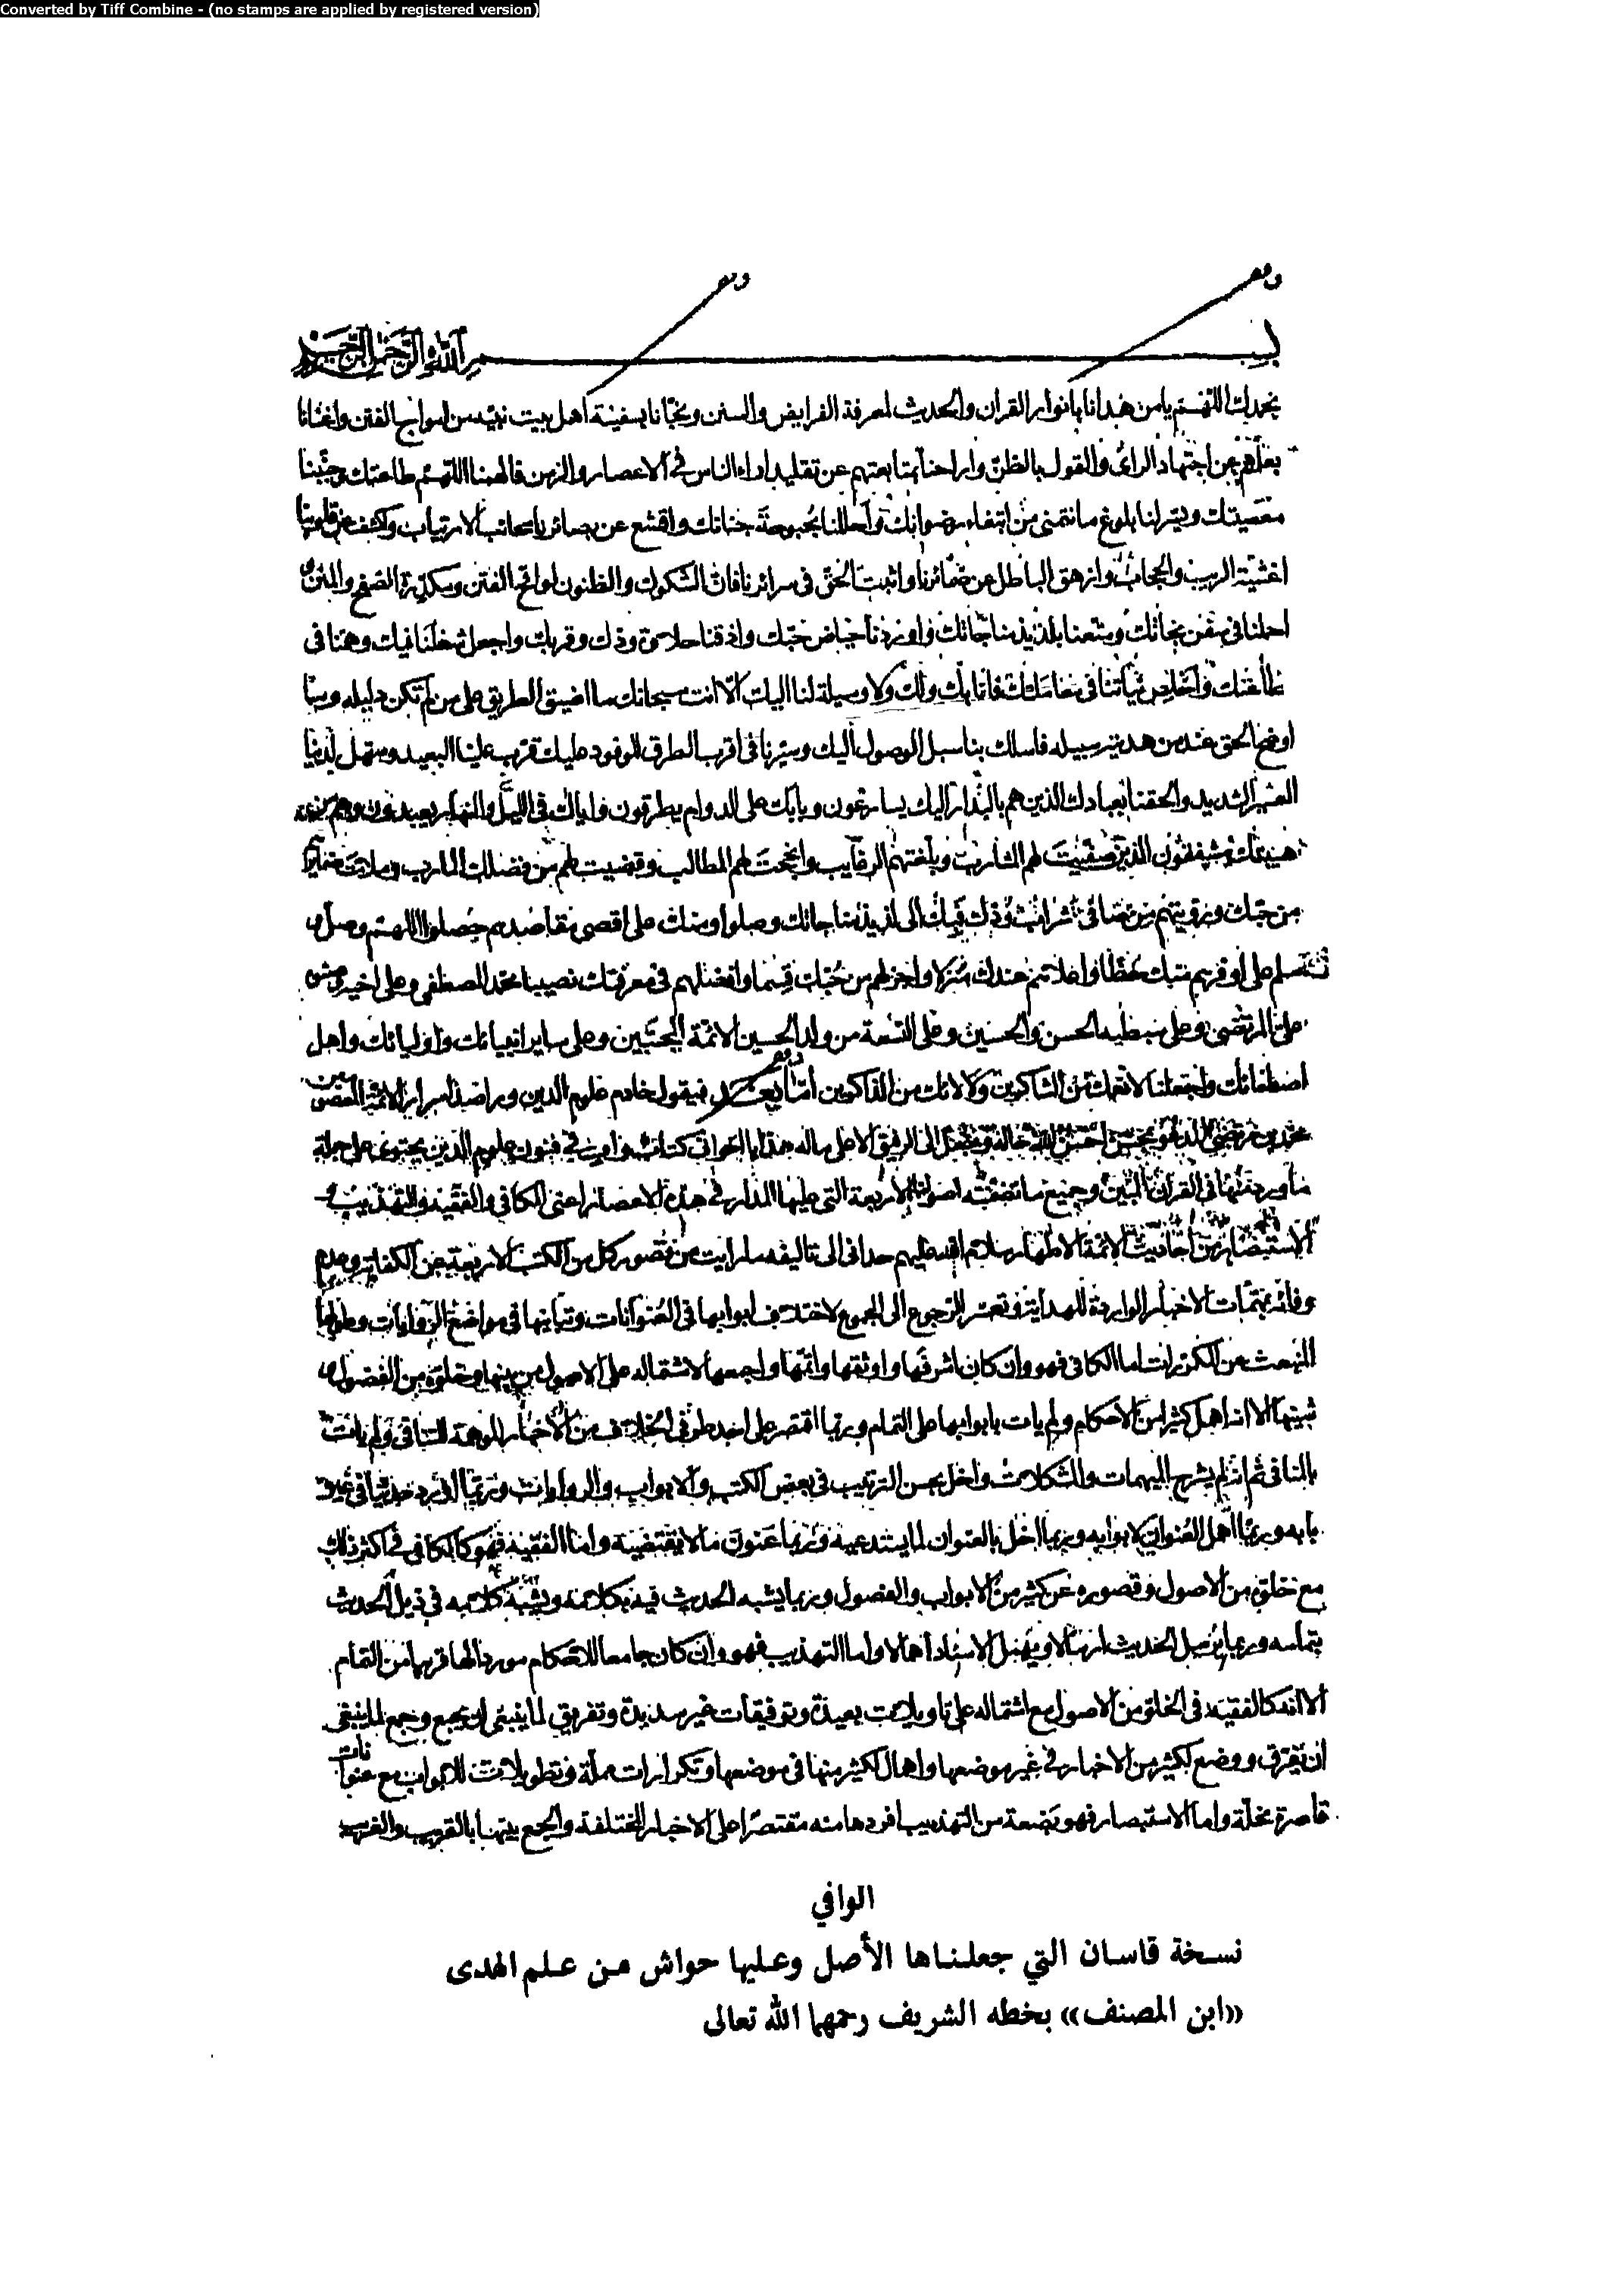 Converted by Tiff Combine - (no stamps are applied by registered version)
بسم الله الرحمن الرحيم
نحمدك اللهم يا من هدانا بانوار القران والحديث لمعرفة الفرايض والسنن ونجانا بسفينة اهل بيت نبيه من امواج الفتن واغنانا
بعلمهم عن اجتهاد الراى والقول بالظن واراحنا بمتابعتهم عن تقليد اراء الناس فى الاعصار والزمن فالهمنا اللهم طاعتك وجنبنا
معصيتك ويسر لنا بلوغ ما نتمنى من ابتغاء رضوانك واحللنا بحبوحة جنانك واقشع عن بصائرنا سحائب الارتياب واكشف عن قلوبنا
اغشية الريب والحجاب وازهق الباطل عن ضمائرنا واثبت الحق فى سرائرنا فان الشكوك والظنون لواقح الفتن ومكدرة الصفح والمنن و
احملنا فى سفن نجاتك ومتعنا بلذيذ مناجاتك واوردنا حياض حبك واذقنا حلاوة ودك وقربك واجعل شغلنا فيك وهمنا فى
طاعتك واخلص نياتنا فى معاملتك فانا بك ولك ولا وسيلة لنا اليك الا انت سبحانك ما اضيق الطريق على من لم تكن دليله وما
اوضح الحق عند من هديته سبيله فاسلك بنا سبل الوصول اليك وسيرنا فى اقرب الطرق للوفود عليك قرب علينا البعيد وسهل لدينا
العسير الشديد والحقنا بعبادك الذين هم بالبدار اليك يسارعون وبابك على الدوام يطرقون واياك فى الليل والنهار يعبدون وهم من
هيبتك مشفقون الذين صفيت لهم المشارب وبلغتهم الرغايب وانجحت لهم المطالب وقضيت لهم من فضلك المارب وملات ضمايرهم
من حبك ورويتهم من صافى شرابك فبك الى لذيذ مناجاتك وصلوا ومنك على اقصى مقاصدهم حصلوا اللهم وصل و
سلم على اوفرهم منك حظا واعلاهم عندك منزلا واجزلهم من حبك قسما وافضلهم فى معرفتك نصيبا محمد المصطفى وعلى اخيه
على المرتضى وعلى سبطيه الحسن والحسين وعلى التسعة من ولد الحسين الائمة المجتبين وعلى ساير انبيائك واوليائك واهل
اصطفائك واجعلنا لانعمك من الشاكرين ولالائك من الذاكرين اما بعد فيقول خادم علوم الدين وراصد اسرار الائمة المعصومين
محمد بن مرتضى المدعو بمحسن احسن الله حاله وجعل الى الرفيق الاعلى ماله هذا يا اخوانى كتاب واف فى فنون علوم الدين يحتوى على جملة
ما ورد منها فى القران المبين وجميع ما تضمنته اصولنا الاربعة التى عليها المدار فى هذه الاعصار اعنى الكافى والفقيه والتهذيب و
الاستبصار من احاديث الائمة الاطهار سلام الله عليهم حدانى الى تاليفه ما رايت من قصور كل من الكتب الاربعة عن الكفاية وعدم
وفائه بمهمات الاخبار الواردة للهداية وتعسر الرجوع الى المجموع لاختلاف ابوابها فى العنوانات وتباينها فى مواضع الروايات وطولها
المنبعث عن المكررات اما الكافى فهو وان كان اشرفها واوثقها واتمها واجمعها لاشتماله على الاصول من بينها وخلوه من الفضول و
شينها الا انه اهمل كثيرا من الاحكام ولم يات بابوابها على التمام وربما اقتصر على احد طرفى الخلاف من الاخبار الموهمة للتنافى ولم يات
بالمنافى ثم انه لم يشرح المبهمات والمشكلات واخل بحسن الترتيب فى بعض الكتب والابواب والروايات وربما اورد حديثا فى غير
بابه وربما اهمل العنوان لابوابه وربما اخل بالعنوان لما يستدعيه وربما عنون ما لا يقتضيه واما الفقيه فهو كالكافى فى اكثر ذلك
مع خلوه من الاصول وقصوره عن كثير من الابواب والفصول وربما يشبه الحديث فيه بكلامه ويشبه كلامه فى ذيل الحديث
بتمامه وربما يرسل الحديث ارسالا ويهمل الاسناد اهمالا واما التهذيب فهو وان كان جامعا للاحكام موردا لها قريبا من التمام
الا انه كالفقيه فى الخلو من الاصول مع اشتماله على تاويلات بعيدة وتوفيقات غير سديدة وتفريق لما ينبغى ان يجمع وجمع لما ينبغى
ان يفرق ووضع لكثير من الاخبار فى غير موضعها واهمال لكثير منها فى موضعها وتكرارات مملة وتطويلات للابواب مع عنوانات
قاصرة مخلة واما الاستبصار فهو بضعة من التهذيب افردها منه مقتصرا على الاخبار المختلفة والجمع بينها بالقريب والغريب
الوافي
نسخة قاسان التي جعلناها الأصل وعليها حواش من علم الهدى
«ابن المصنف» بخطه الشريف رحمهما الله تعالى